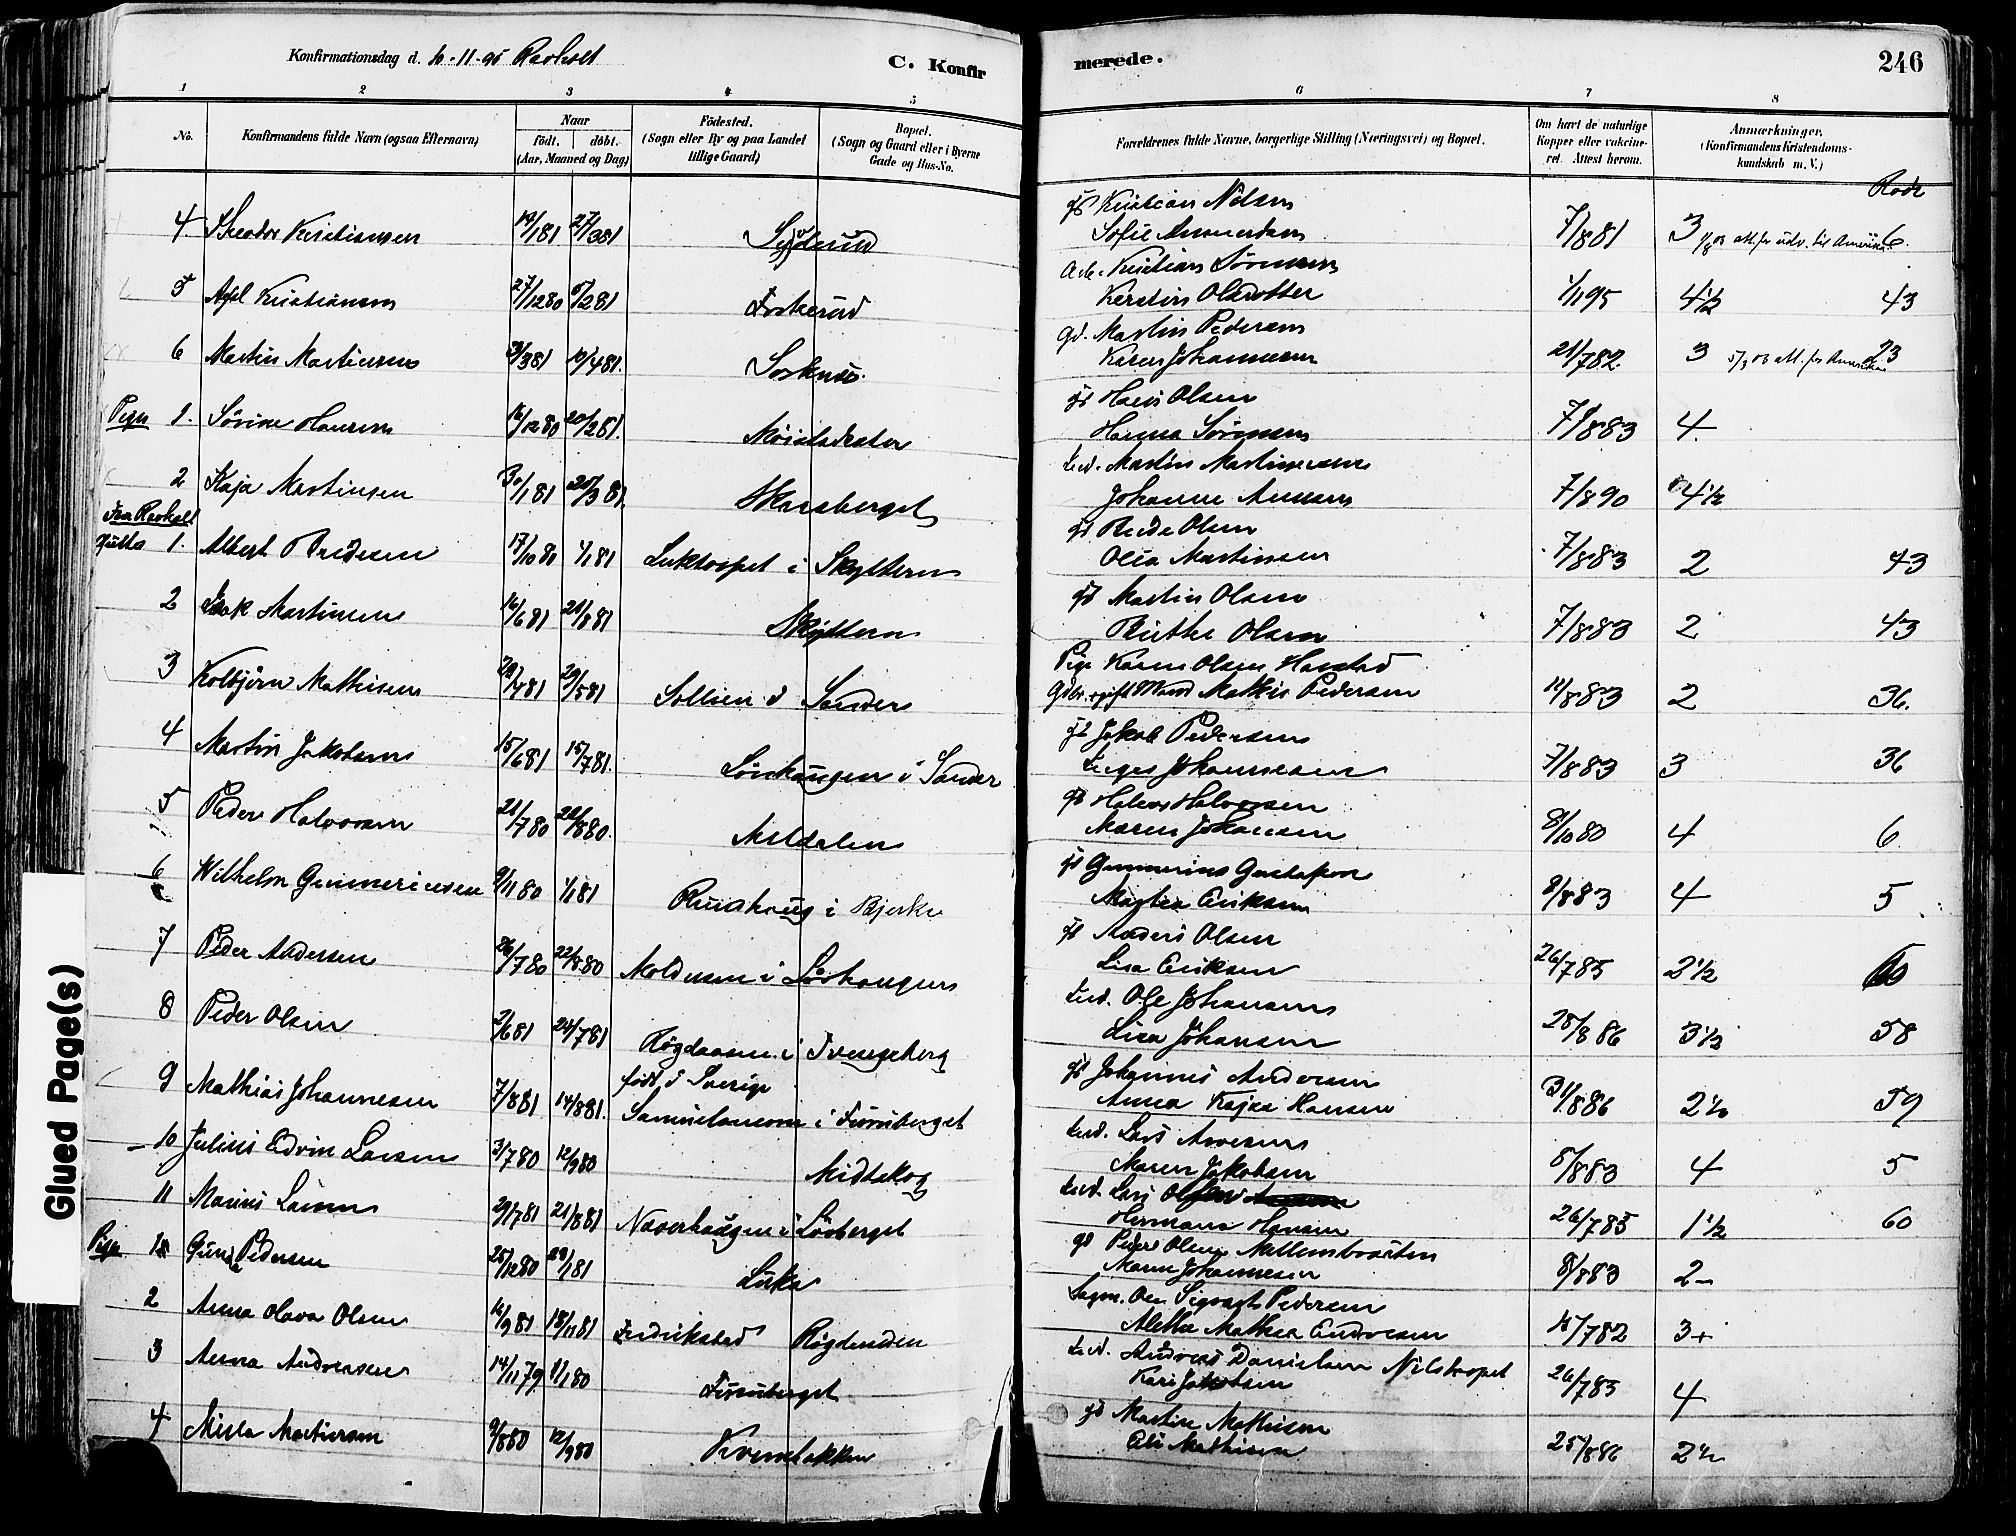 Konfirmationsdag d. 10-11-95 Ravholt C. Konfir
merede. 246
1 2 3 4 5 6 7 8
No. Konfirmandens fulde Navn (ogsaa Efternavn) Naar født. døbt. (Aar, Maaned og Dag) Fødested. (Sogn eller By og paa Landet tillige Gaard) Bopæl. (Sogn og Gaard eller i Byerne Gade og Hus-No. Forældrenes fulde Navne, borgerlige Stilling (Næringsvei) og Bopæl. Om havt de naturlige Kopper eller vakcineret. Attest herom. Anmærkninger. (Konfirmandens Kristendomskundskab m. V.) Rode
4 Theodor Kristiansen 19/1 81 27/3 81 gb Kristian Nilsen
Sofie 7/8 81 3 att. for udv. til Amerika 6.
5 Axel Kristiansen 27/12 80 6/2 81 Foskerud Kristian Sørensen
Kerstin Olsdotter 1/1 95 4½ 43
6 Martin Martinsen 3/3 81 10/4 81. Sorknæs Gd. Martin Pedersen
Karen Johannesen 21/7 82. 3 5/9 03 att. for Amerika 23
Piger 1. Sørine Hansen 16/12 80 20/2 81. gb Hans Olsen
Hanna Sørensen 7/8 83 4.
2 Kaja Martinsen 30/1 81 20/3 81. Skarsberget Ind. Martin Martinsen
Johanne 7/8 90 4½
Fra Ravholt
Gutta 1. Albert Bredesen 17/10 80 1/1 81 Luktorpet i Skyttern gb Brede Olsen
Olea Martinsen 7/8 83 2 43
2 Isak Martinsen 16/6 81 21/8 81 Skyttern gb Martin Olsen
Berthe Olsen 7/8 83 2 43
3 Kolbjørn Mathisen 20/4 81 29/5 81 Sollien i Sander Pige Karen Olsen Harstad
Mathis Pedersen 12/8 83 2 36.
4 Martin Jakobsen 15/6 81 15/7 81. Lövhaugen i Sander gb Jakob Pedersen
Inger Johannesen 7/8 83 3 36
5 Peder Halvorsen 21/7 80 22/8 80. Meldalen gb Halvor Halvorsen
Maren Johansen 8/10 80 4 6
6 Wilhelm Gunneriusen 9/11 80 1/1 81 Rundhaug i Bjerke gb Gunnerius Gustafson
Marthe Eriksen 8/8 83 4 5
7 Peder Andersen 26/7 80 22/8 80 Moldusen i Lövhaugen gb Anders Olsen
Lisa Eriksen 26/7 85 2½ 60
8 Peder Olsen 2/6 81 24/7 81 Røgdaasen i Tvengsberg Ind. Ole Johansen
Lisa Johansen 25/8 86 3½ 58
9 Mathias Johannesen 7/8 81 14/8 81. født i Sverige
i Furuberget gb Johannes Andersen
Anna Kajsa Hansen 31/8 86 2½ 59
10 Julius Edvin Larsen 3/7 80 12/9 80 Midtskog Ind. Lars
Maren Jakobsen 8/8 83 4 5
11 Marius Larsen 29/7 81 21/8 81 Naverhaugen i Lövberget Ind. Lars Olsen
Hermana Hansen 26/7 85 1½ 60
Piger 1 Guna Pedersen 25/12 80 Liska gb Peder Olsen
Maren Johannesen 8/8 83 2-
2 Anna Olava Olsen 16/9 81 18/11 81 Fredrikstad Røgdenden Sagm. Ole Sigvart Pedersen
Alethe Mathea Andresen 15/7 82 3+
3 Anna Andreasen 14/11 79 1/1 80 Furuberget Ind. Andreas Danielsen Nilstorpet
Kari Jakobsen 26/7 85 4
4 Milla Martinsen 9/8 80 12/9 80 Kvernbakken gb Martin Mathisen
Mathisen 25/8 86 2½
Glued Page(s)